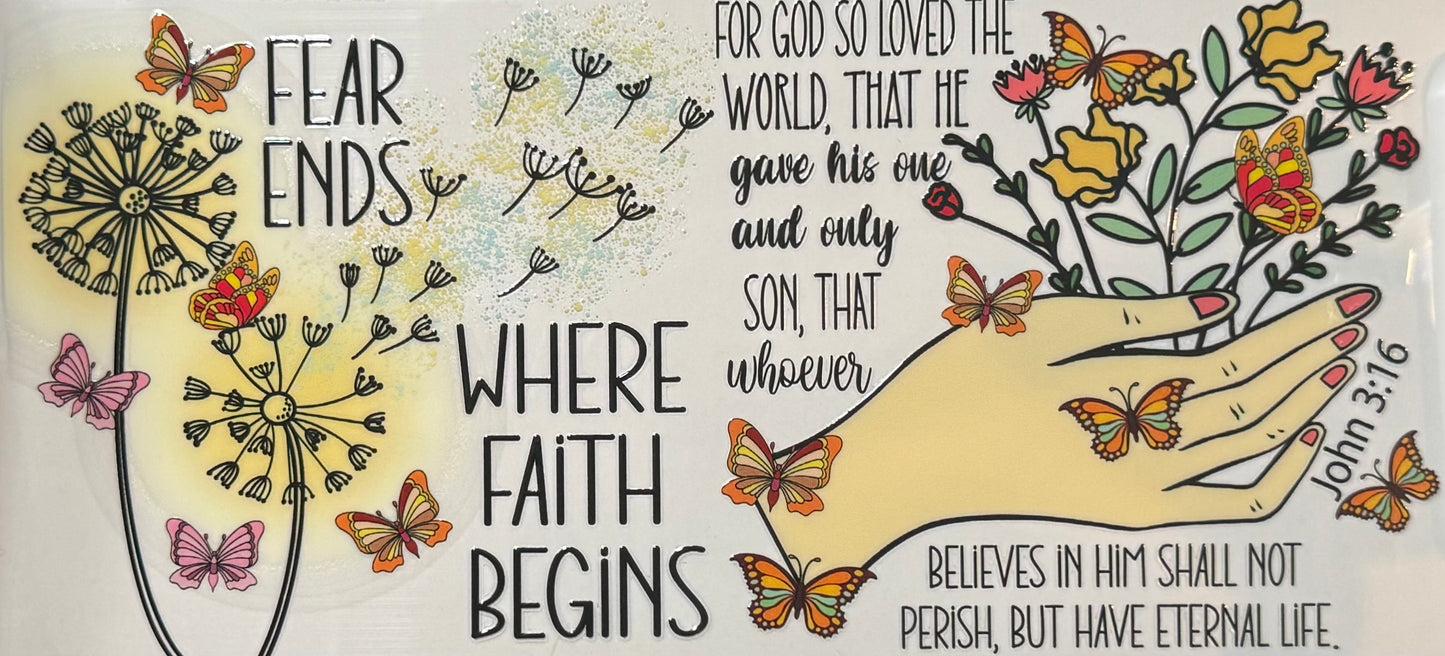 FEAR
ENDS
WHERE
FAiTH
BEGiNS
FOR GOD SO LOVED THE
WORLD, THAT HE
gave his one
and only
SON, THAT
whoever
BELiEVES iN HiM SHALL NOT
PERiSH, BUT HAVE ETERNAL LiFE.
John 3:16